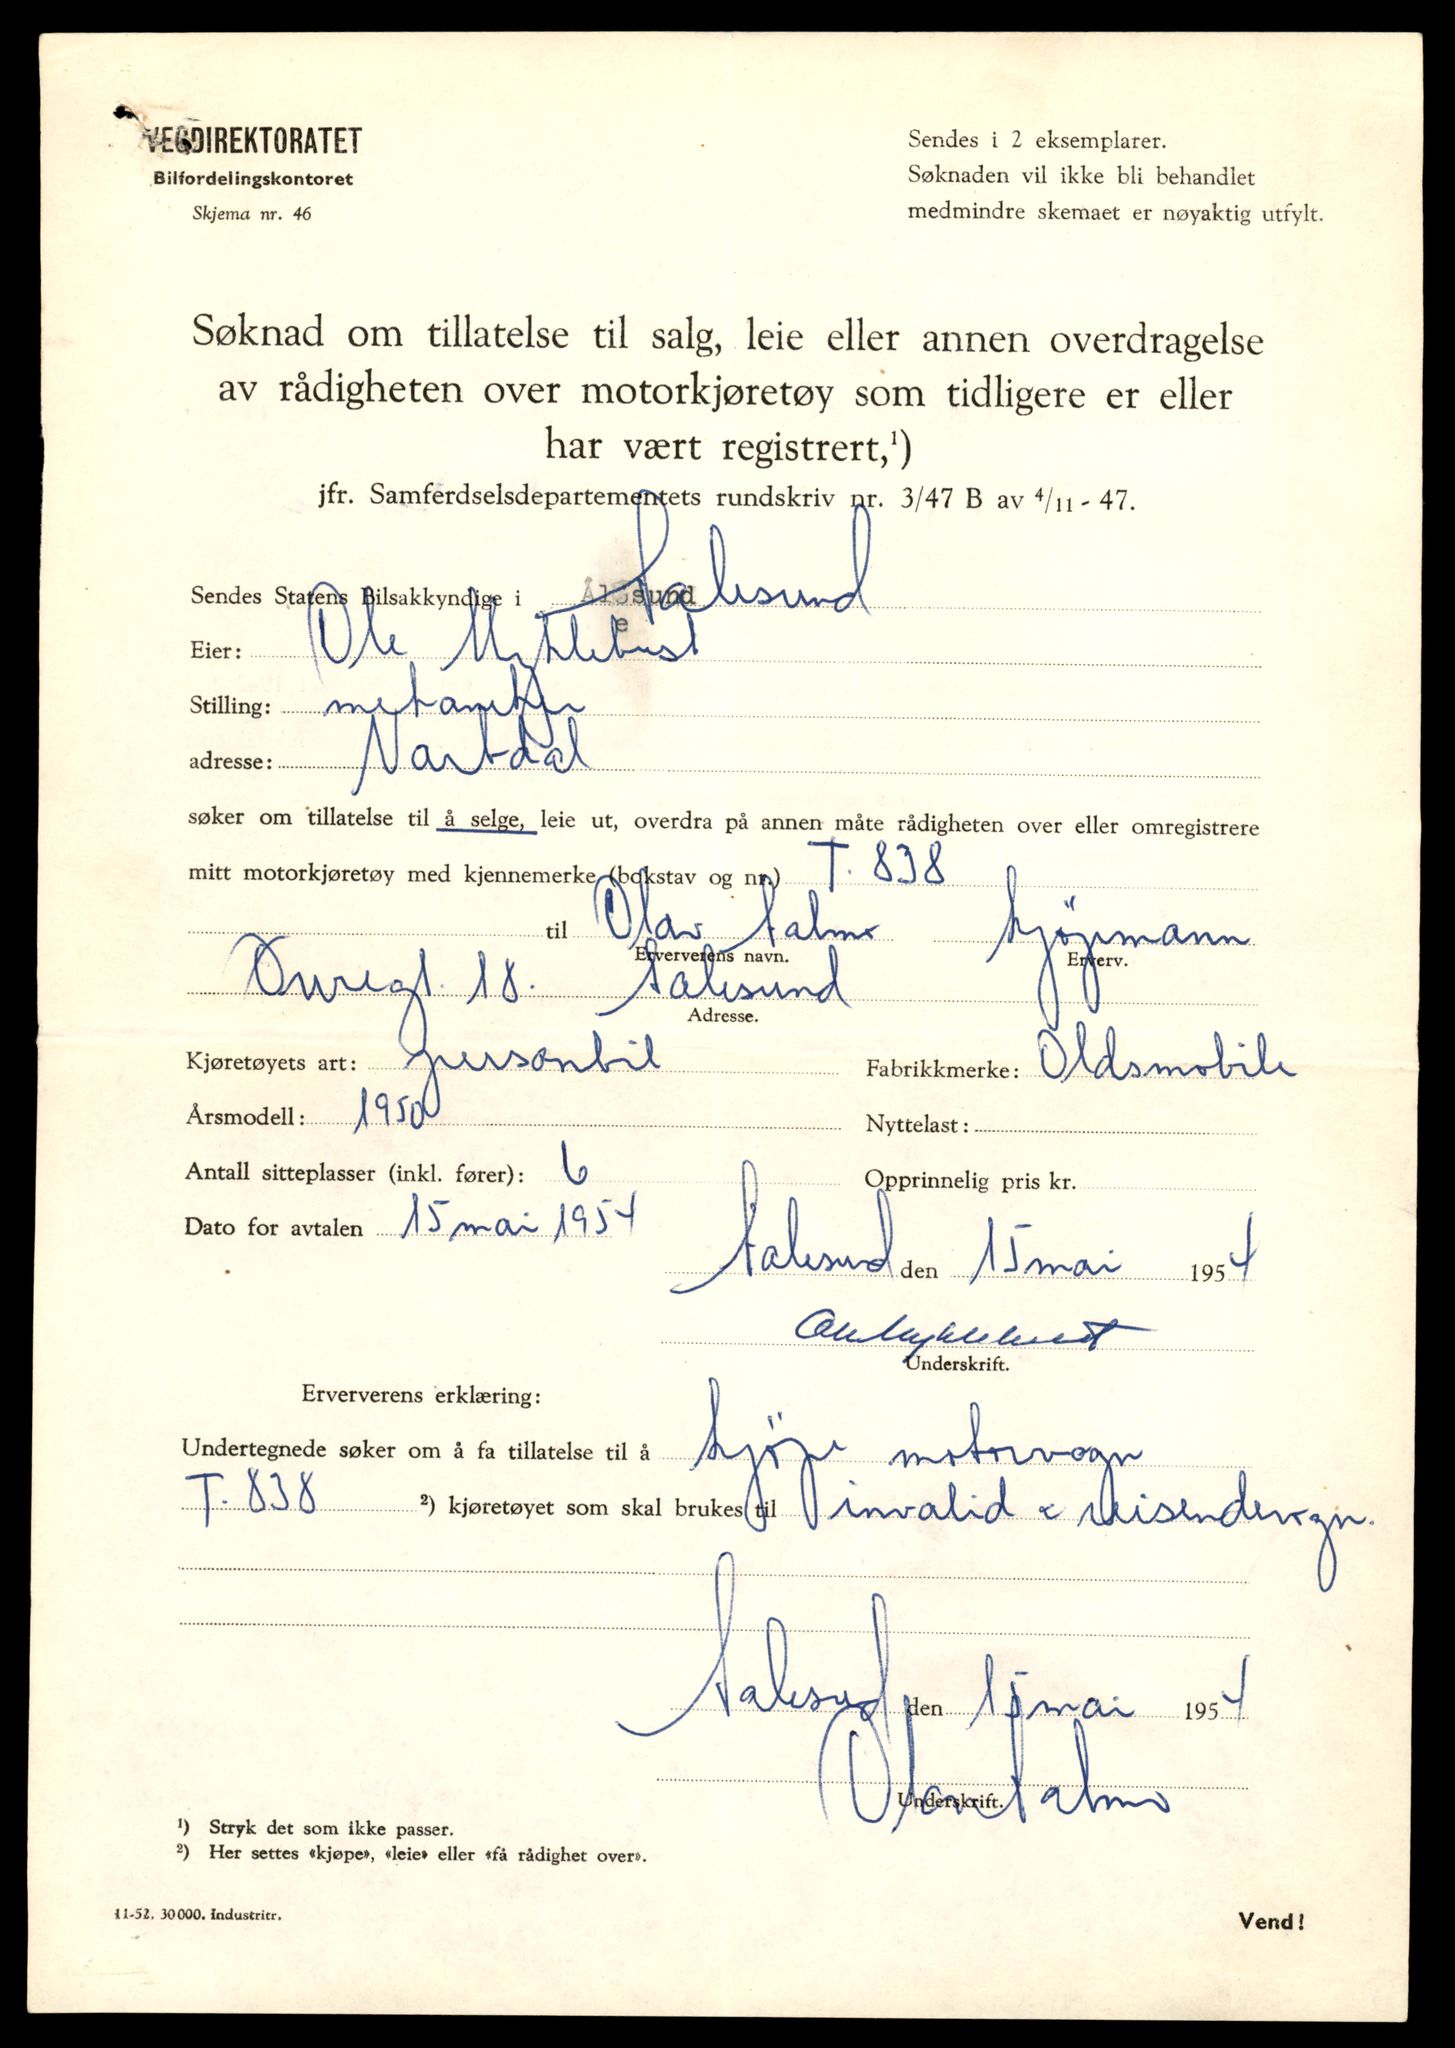 VEGDIREKTORATET
Bilfordelingskontoret
Skjema nr. 46
Sendes i 2 eksemplarer.
Søknaden vil ikke bli behandlet
medmindre skemaet er nøyaktig utfylt.
Søknad om tillatelse til salg, leie eller annen overdragelse
av rådigheten over motorkjøretøy som tidligere er eller
har vært registrert,¹)
jfr. Samferdselsdepartementets rundskriv nr. 3/47 B av 4/11 - 47.
Sendes Statens Bilsakkyndige i Ålesund Aalesund
Eier: Ole Myklebust
Stilling: mekaniker
adresse: Vartdal
søker om tillatelse til å selge, leie ut, overdra på annen måte rådigheten over eller omregistrere
mitt motorkjøretøy med kjennemerke (bokstav og nr.) T. 838
til Olav Aalmo kjøpmann
Erververens navn. Erverv.
18. Aalesund
Adresse.
Kjøretøyets art: personbil Fabrikkmerke: Oldsmobile
Årsmodell: 1950 Nyttelast:
Antall sitteplasser (inkl. fører): 6 Opprinnelig pris kr.
Dato for avtalen 15 mai 1954
Aalesund den 15 mai 1954
Ole Myklebust
Underskrift.
Erververens erklæring:
Undertegnede søker om å fa tillatelse til å kjöpe motorvogn
T. 838 ²) kjøretøyet som skal brukes til invalid & reisendevogn.
Aalesund den 15 mai 1954
Olav Aalmo
Underskrift.
¹) Stryk det som ikke passer.
²) Her settes «kjøpe», «leie» eller «få rådighet over».
11-52. 30000. Industritr.
Vend!